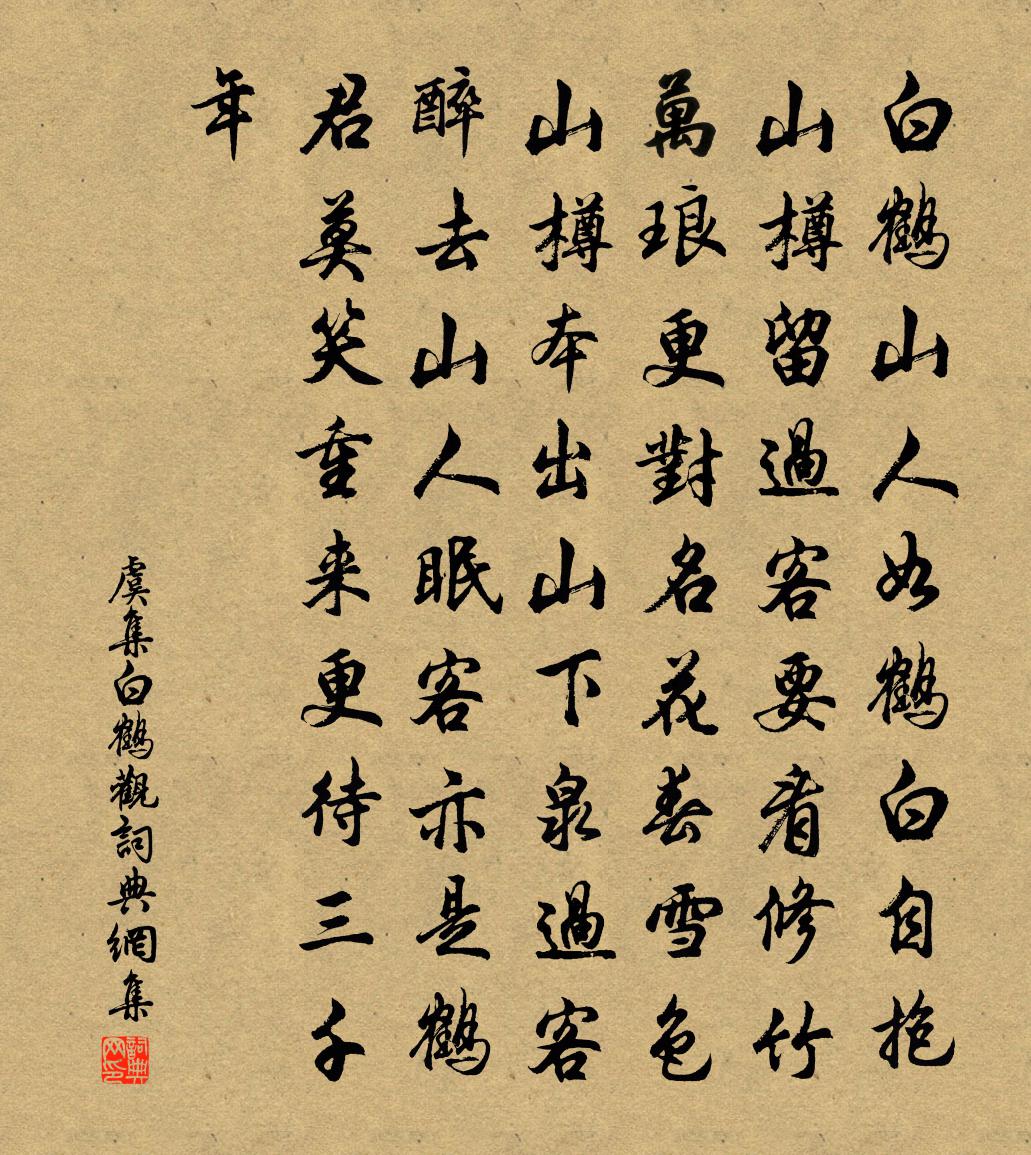 白鶴山人如鶴白自抱
山樽留過客要看修竹
萬琅更對名花春雪色
山樽本出山下泉過客
醉去山人眠客亦是鶴
君莫笑重来更待三千
年
虞集白鶴觀詞典網集
詞典网印